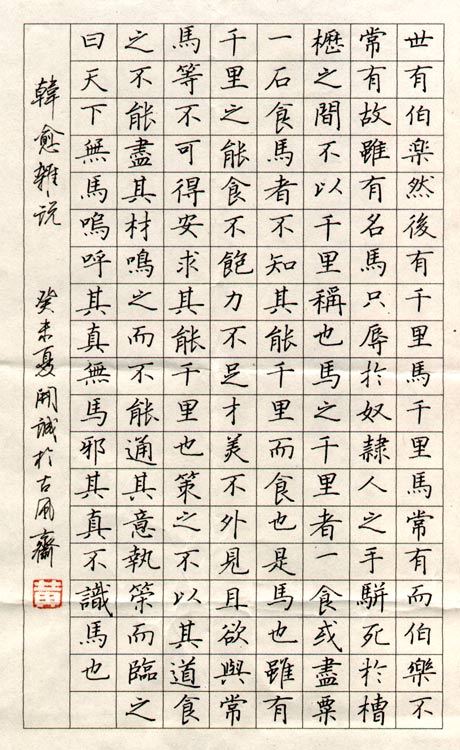 世有伯楽然後有千里馬千里馬常有而伯樂不
常有故雖有名馬只辱於奴隸人之手駢死於槽
櫪之間不以千里稱也馬之千里者一食或盡粟
一石食馬者不知其能千里而食也是馬也雖有
千里之能食不飽力不足才美不外見且欲與常
馬等不可得安求其能千里也策之不以其道食
之不能盡其材鳴之而不能通其意執策而臨之
曰天下無馬嗚呼其真無馬邪其真不識馬也
韓愈雜说 癸未夏開誠於古風齋
黄